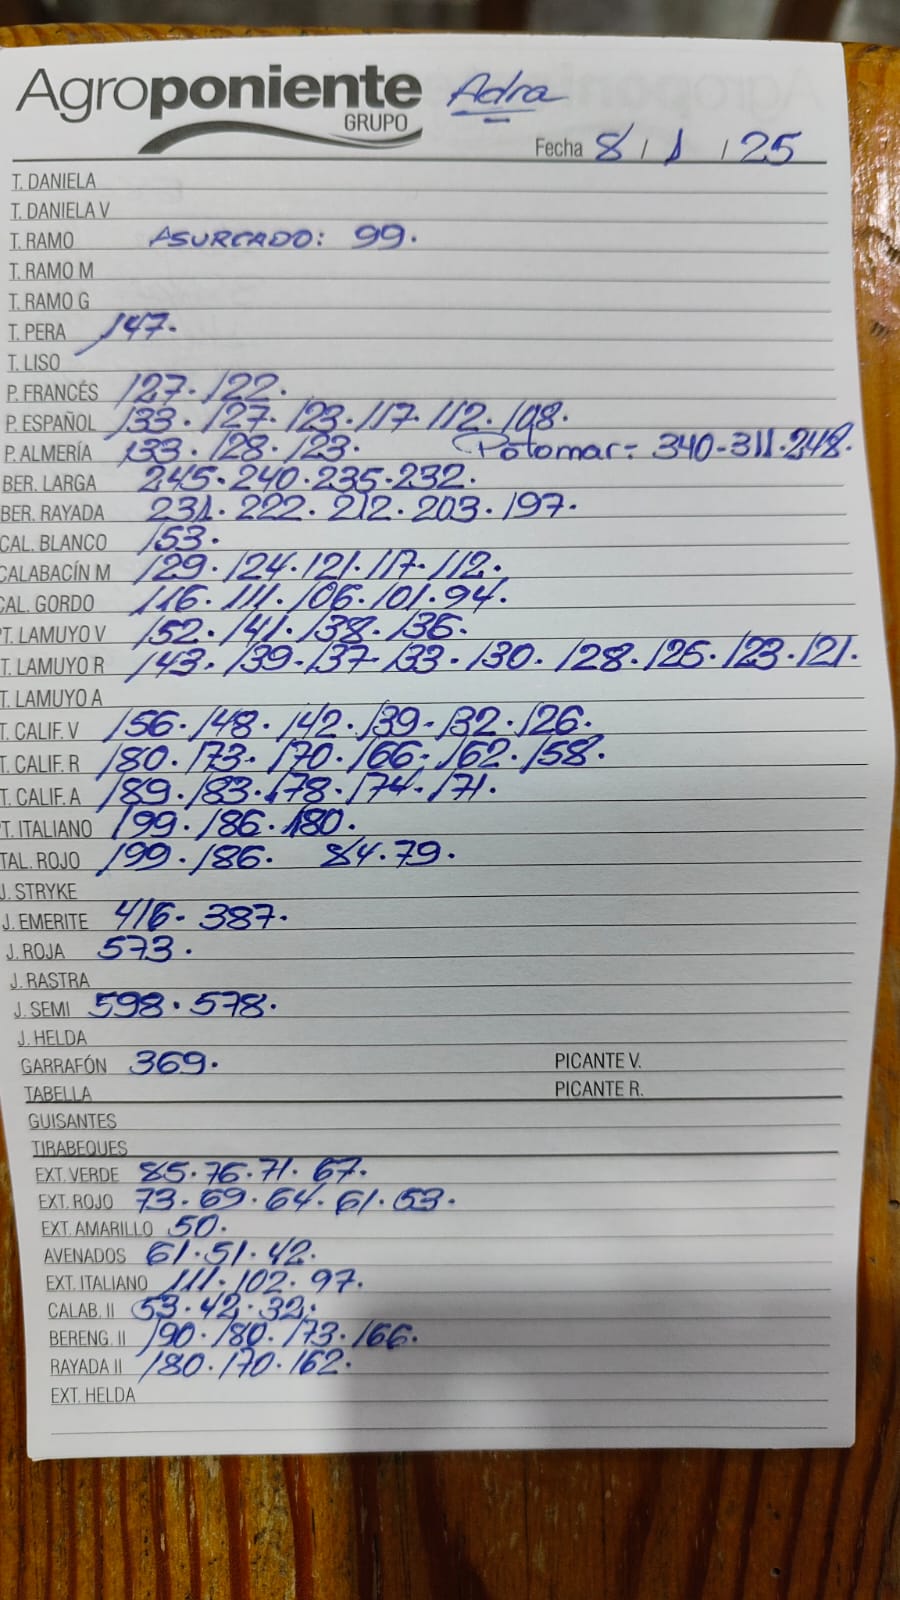 Agroponiente Adra
GRUPO
Fecha 8 / 1 / 25
T. DANIELA
T. DANIELA V
T. RAMO ASURCADO: 99.
T. RAMO M
T. RAMO G
T. PERA 147.
T. LISO
P. FRANCÉS 127. 122.
P. ESPAÑOL 133. 127. 123. 117. 112. 108.
P. ALMERÍA 133. 128. 123. Potomar= 340-311.248.
BER. LARGA 245. 240. 235. 232.
BER. RAYADA 231. 222. 212. 203. 197.
CAL. BLANCO 153.
CALABACÍN M 129. 124. 121. 117. 112.
CAL. GORDO 116. 111. 106. 101. 94.
PT. LAMUYO V 152. 141. 138. 136.
T. LAMUYO R 143. 139. 137. 133. 130. 128. 125. 123. 121.
T. LAMUYO A
T. CALIF. V 156. 148. 142. 139. 132. 126.
T. CALIF. R 180. 173. 170. 166. 162. 158.
T. CALIF. A 189. 183. 178. 174. 171.
PT. ITALIANO 199. 186. 180.
TAL. ROJO 199. 186. 84. 79.
J. STRYKE
J. EMERITE 416. 387.
J. ROJA 573.
J. RASTRA
J. SEMI 598. 578.
J. HELDA
GARRAFÓN 369. PICANTE V.
TABELLA PICANTE R.
GUISANTES
TIRABEQUES
EXT. VERDE 85. 76. 71. 67.
EXT. ROJO 73. 69. 64. 61. 53.
EXT. AMARILLO 50.
AVENADOS 61. 51. 42.
EXT. ITALIANO 111. 102. 97.
CALAB. II 53. 42. 32.
BERENG. II 190. 180. 173. 166.
RAYADA II 180. 170. 162.
EXT. HELDA